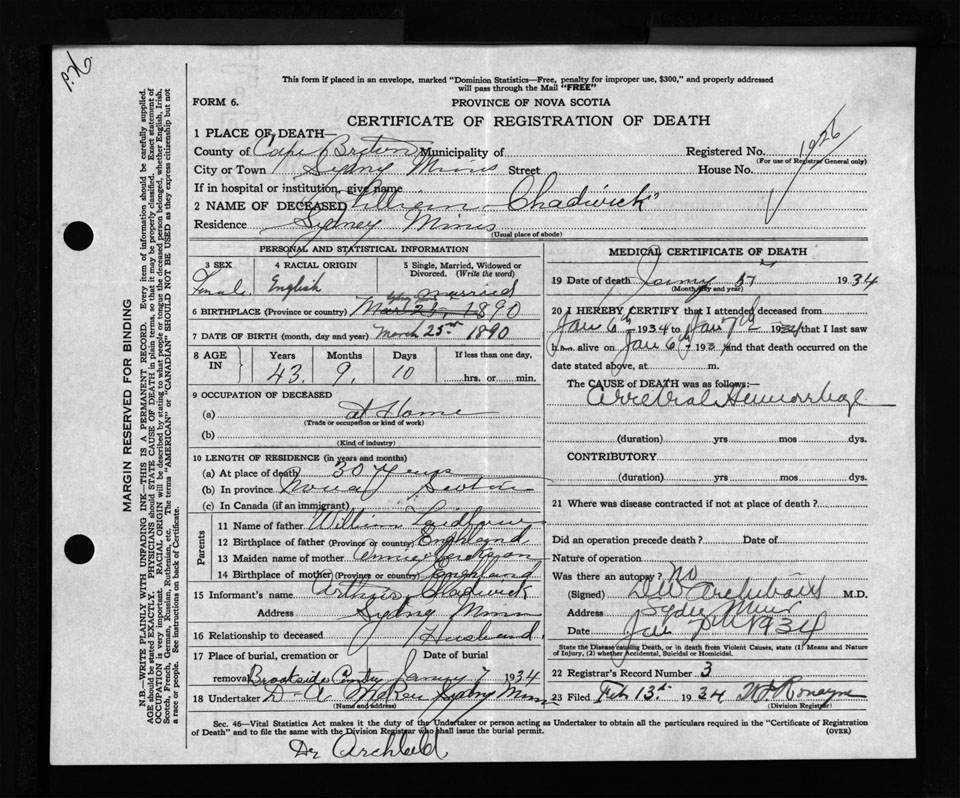 This form if placed in an envelope, marked "Dominion Statistics—Free, penalty for improper use, $300," and properly addressed
will pass through the Mail "FREE"
FORM 6.
PROVINCE OF NOVA SCOTIA
CERTIFICATE OF REGISTRATION OF DEATH
1926
1 PLACE OF DEATH—
County of Cape Breton Municipality of Registered No.
(For use of Registrar General only)
City or Town Sydney Mines Street House No.
If in hospital or institution, give name
2 NAME OF DECEASED Lilliein Chadwick
Residence Sydney Mines
(Usual place of abode)
PERSONAL AND STATISTICAL INFORMATION
3 SEX 4 RACIAL ORIGIN 5 Single, Married, Widowed or Divorced. (Write the word)
Female English married
6 BIRTHPLACE (Province or country) Mar 25, 1890
7 DATE OF BIRTH (month, day and year) March 25th 1890
8 AGE IN Years Months Days If less than one day,
43. 9. 10 hrs. or min.
9 OCCUPATION OF DECEASED
(a) at Home
(Trade or occupation or kind of work)
(b)
(Kind of industry)
10 LENGTH OF RESIDENCE (in years and months)
(a) At place of death 30 Years
(b) In province Nova Scotia
(c) In Canada (if an immigrant)
Parents
11 Name of father William
12 Birthplace of father (Province or country) England
13 Maiden name of mother Annie
14 Birthplace of mother (Province or country) England
15 Informant's name Arthur Chadwick
Address Sydney Mines
16 Relationship to deceased Husband
17 Place of burial, cremation or removal Date of burial
Brookside Cemetery January 7 1934
18 Undertaker D. A. McRae Sydney Mines
(Name and address)
MEDICAL CERTIFICATE OF DEATH
19 Date of death January 5th 1934
(Month, day and year)
20 I HEREBY CERTIFY that I attended deceased from
Jan 6th 1934 to Jan 7th 1934 that I last saw
her alive on Jan 6th 193 and that death occurred on the
date stated above, at m.
The CAUSE OF DEATH was as follows:—
Cerebral Hemorrhage
(duration) yrs mos dys.
CONTRIBUTORY
(duration) yrs mos dys.
21 Where was disease contracted if not at place of death?
Did an operation precede death? Date of
Nature of operation
Was there an autopsy? No
(Signed) D W Archibald M.D.
Address Sydney Mines
Date Jan 7th 1934
State the Disease causing Death, or in death from Violent Causes, state (1) Means and Nature of Injury, (2) whether Accidental, Suicidal or Homicidal.
22 Registrar's Record Number 3
23 Filed Feb 13th 1934 Ronayne
(Division Registrar)
Sec. 46—Vital Statistics Act makes it the duty of the Undertaker or person acting as Undertaker to obtain all the particulars required in the "Certificate of Registration
of Death" and to file the same with the Division Registrar who shall issue the burial permit.
(OVER)
Dr Archibald
MARGIN RESERVED FOR BINDING
N.B.—WRITE PLAINLY WITH UNFADING INK—THIS IS A PERMANENT RECORD. Every item of information should be carefully supplied.
AGE should be stated EXACTLY. PHYSICIANS should STATE CAUSE OF DEATH in plain terms, so that it may be properly classified. Exact statement of
OCCUPATION is very important. RACIAL ORIGIN will be described by stating to what people or tongue the deceased person belonged, whether English, Irish,
Scotch, French, German, Russian, Ruthenian, etc. The terms "AMERICAN" or "CANADIAN" SHOULD NOT BE USED as they express citizenship but not
a race or people. See instructions on back of Certificate.